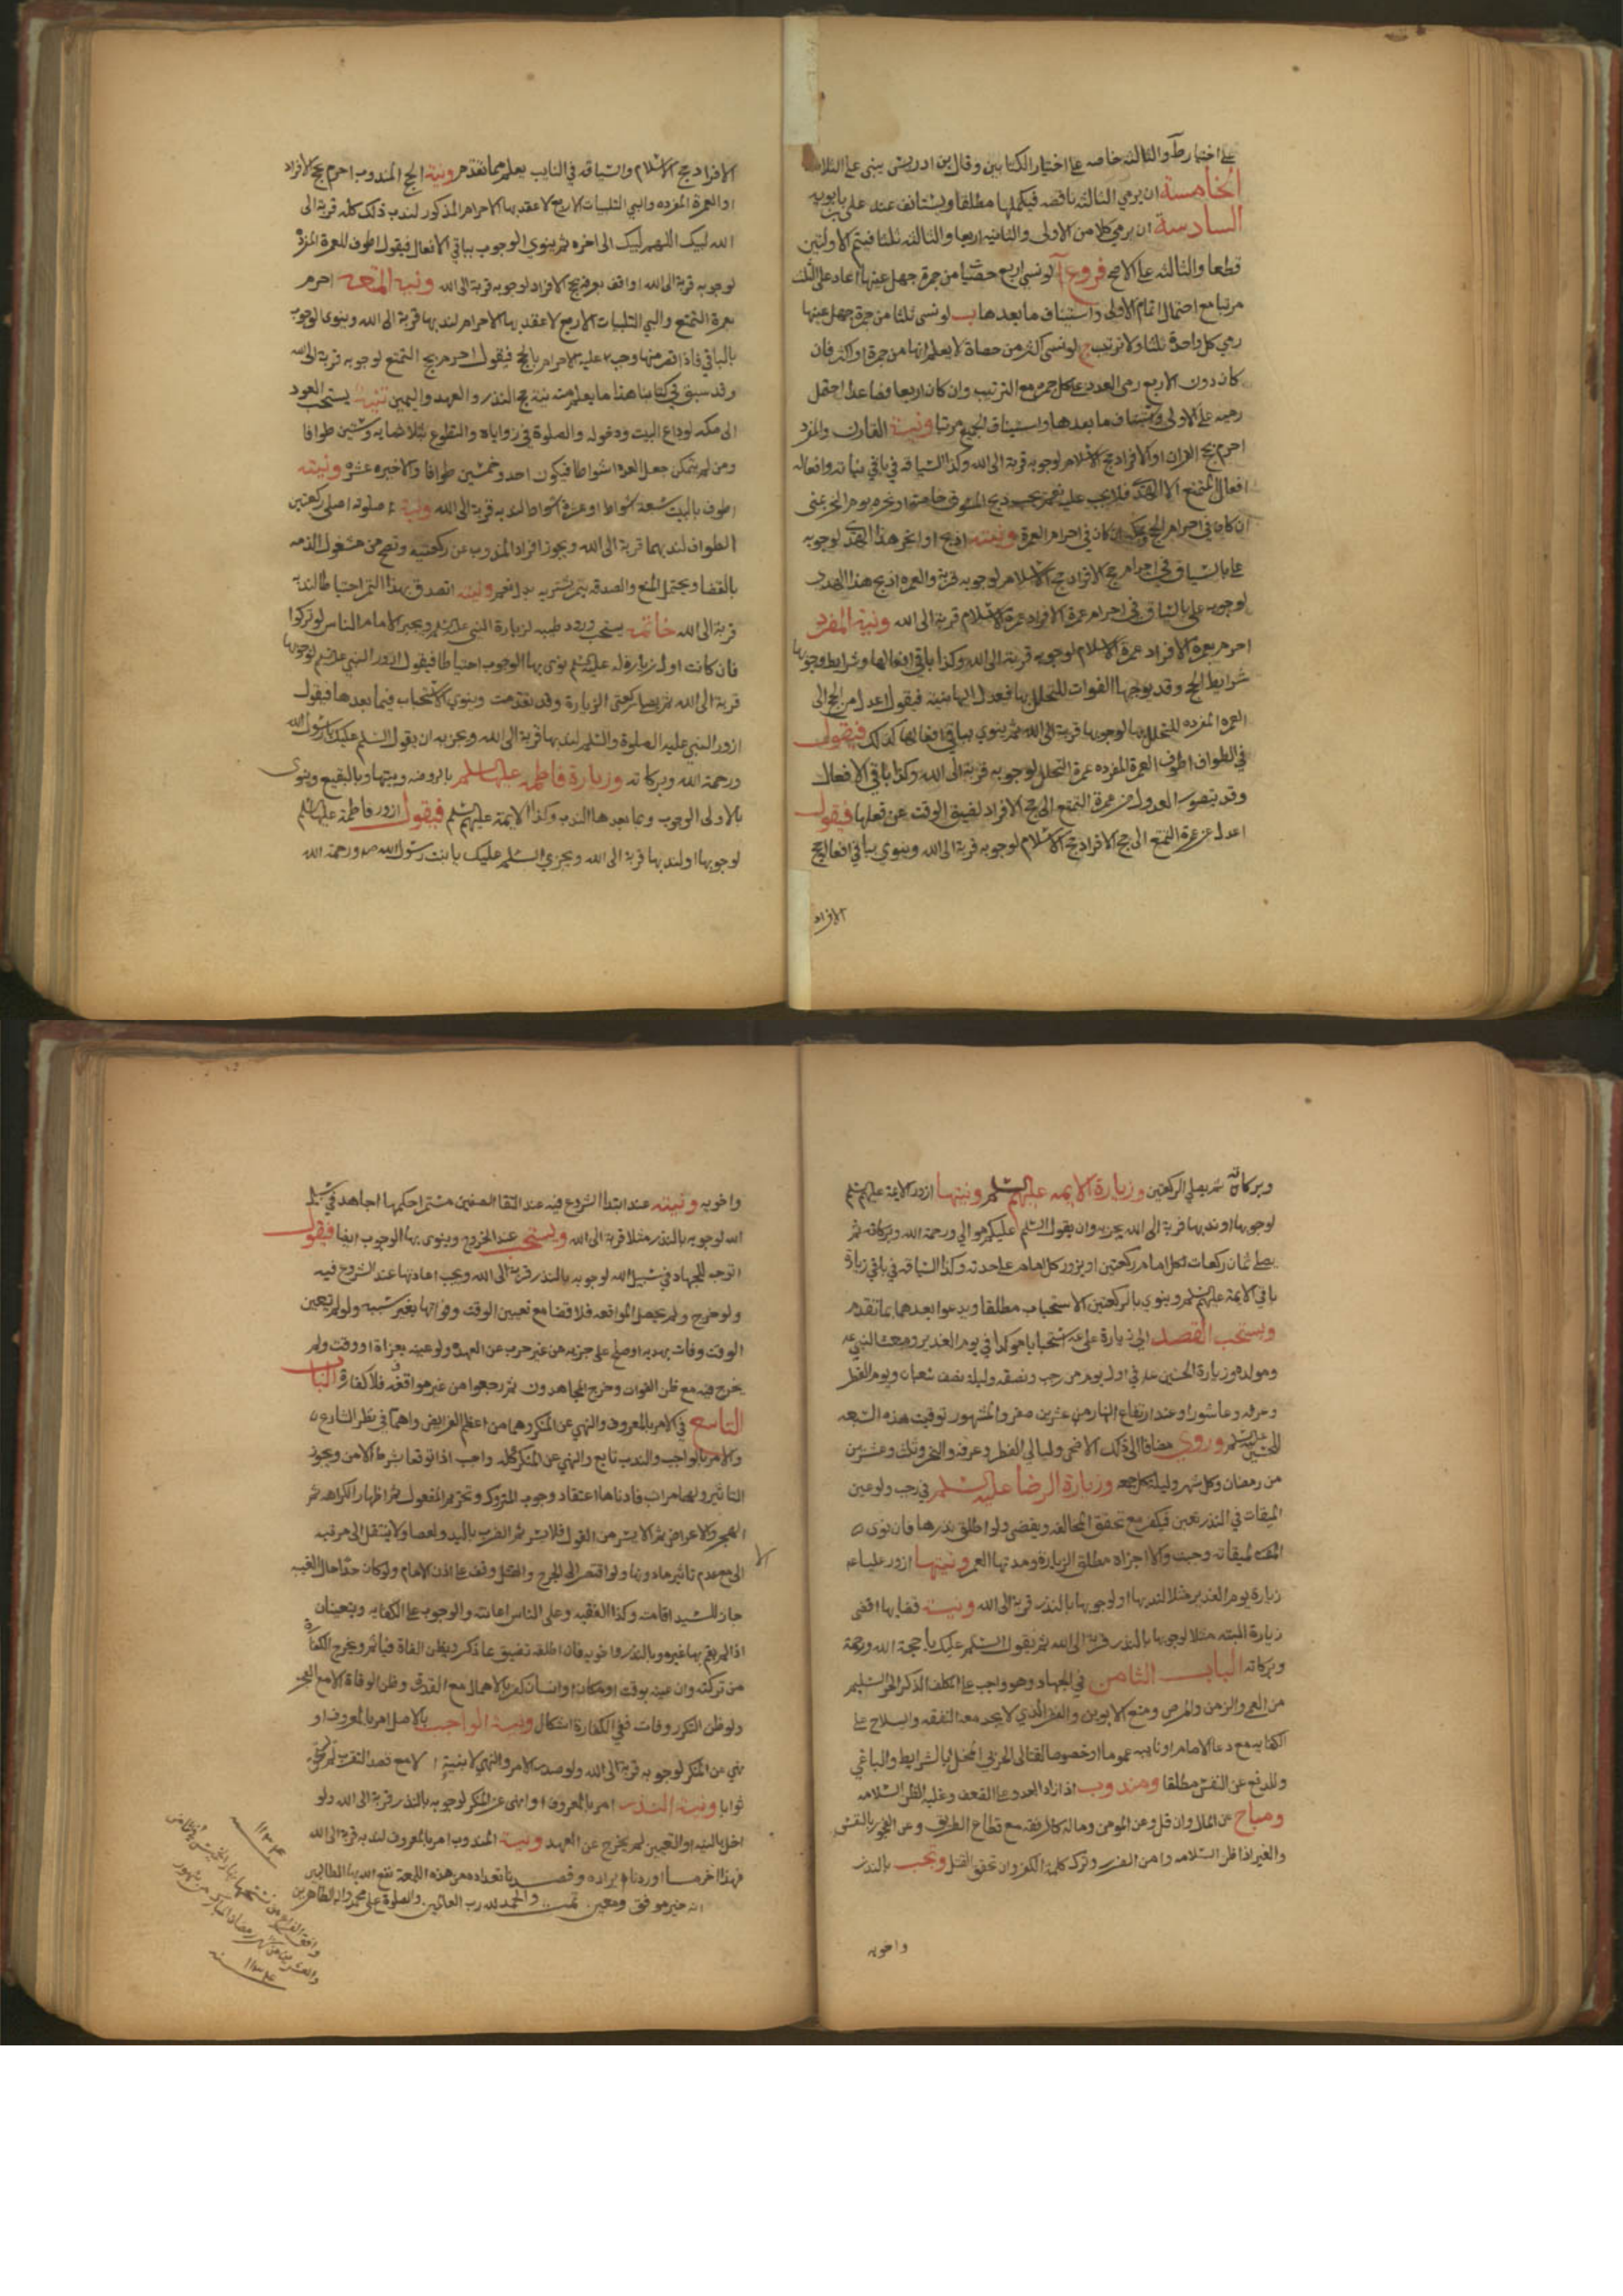 على اختيار ط والثالثة خاصه على اختيار الكتابين وقال بن ادريس يبنى على الثلاث
الخامسة ان يرمي الثالثه ناقصه فيكملها مطلقا ويستانف عند علي بن بابويه
السادسة ان يرمي كلا من الاولى والثانيه اربعا والثالثه ثلثا فيتم الاولتين
قطعا والثالثه على الاصح فروع آ لو نسي اربع حصيات من جمرة جهل عينها اعاد على الثلث
مرتبا مع احتمال اتمام الاولى واستيناف ما بعدها ب لو نسى ثلثا من جمرة جهل عينها
رمي كل واحدة ثلثا ولا ترتيب ج لو نسى اكثر من حصاة لا يعلم انها من جمرة او اكثر فان
كان دون الاربع رمى العدد على كل جمرة مع الترتيب وان كان اربعا فصاعدا احتمل
رميه على الاولى واستيناف ما بعدها واستيناف الجميع مرتبا ونية القارن والمفرد
احرم بحج القران او الافراد حج الاسلام لوجوبه قربة الى الله وكذا السياقه في باقي نياته وافعاله
افعال المتمتع الا الهدى فلا يجب عليه نعم يجب ذبح المسوق خاصة او نحره يوم النحر بمنى
ان كان في احرام الحج وبمكة ان كان في احرام العمرة ونيته اذبح او انحر هذا الهدى لوجوبه
على بالسياق في احرام حج الافراد حج الاسلام لوجوبه قربة والعمره اذبح هذا الهدى
لوجوبه على بالسياق في احرام عمرة الافراد عمرة الاسلام قربة الى الله ونية المفرد
احرم بعمرة الافراد عمرة الاسلام لوجوبه قربة الى الله وكذا باقي افعالها وشرايط وجوبها
شرايط الحج وقد يوجبها الفوات للتحلل بها فيعدل اليها بنية فيقول اعدل من الحج الى
العمره المفرده للتحلل بها لوجوبها قربة الى الله ثم ينوي بباقي افعالها كذلك فيقول
في الطواف اطوف العمرة المفرده عمرة التحلل لوجوبه قربة الى الله وكذا باقي الافعال
وقد يتصور العدول من عمرة التمتع الى حج الافراد لضيق الوقت عن فعلها فيقول
اعدل عن عمرة التمتع الى حج الافراد حج الاسلام لوجوبه قربة الى الله وينوي بباقي افعال حج
الافراد
الافراد حج الاسلام والسياقه في النايب يعلم مما تقدم ونية الحج المندوب احرم بحج الافراد
او العمرة المفرده والبي التلبيات الاربع لاعقد بها الاحرام المذكور لندب ذلك كله قربة الى
الله لبيك اللهم لبيك الى اخره ثم ينوي الوجوب بباقي الافعال فيقول اطوف للعمرة المفردة
لوجوبه قربة الى الله او اقف بعرفة لحج الافراد لوجوبه قربة الى الله ونية المتعه احرم
بعمرة التمتع والبي التلبيات الاربع لاعقد بها الاحرام لندبها قربة الى الله وينوى الوجوب
بالباقي فاذا قصر منها وجب عليه الاحرام بالحج فيقول احرم بحج التمتع لوجوبه قربة الى الله
وقد سبق في كتابنا هذا ما يعلم منه نية حج النذر والعهد واليمين تنبيه يستحب العود
الى مكه لوداع البيت ودخوله والصلوة في زواياه والتطوع بثلاثمايه وستين طوافا
ومن لم يتمكن جعل العدد اشواطا فيكون احد وخمسين طوافا والاخيره عشره ونيته
اطوف بالبيت سبعة اشواط او عشرة اشواط لندبه قربة الى الله ونية صلوته اصلى ركعتين
الطواف لندبهما قربة الى الله ويجوز افراد المندوب عن ركعتيه وتصح من مشغول الذمه
بالقضا ويحتمل المنع والصدقه بتمر يشتريه بدرهم ونيته اتصدق بهذا التمر احتياطا لندبه
قربة الى الله خاتمه يستحب ورود طيبه لزيارة النبي عليه السلم ويجبر الامام الناس لو تركوا
فان كانت اول زيارة له عليه السلم نوى بها الوجوب احتياطا فيقول ازور النبي عليه السلم لوجوبها
قربة الى الله ثم يصلى ركعتي الزيارة وقد تقدمت وينوي الاستحباب فيما بعدها فيقول
ازور النبي عليه الصلوة والسلم لندبها قربة الى الله ويجزيه ان يقول السلم عليك يا رسول الله
ورحمة الله وبركاته وزيارة فاطمه عليها السلم بالروضه وبيتها وبالبقيع وينوى
بالاولى الوجوب وبما بعدها الندب وكذا الايمة عليهم السلم فيقول ازور فاطمة عليها السلم
لوجوبها او لندبها قربة الى الله ويجزي السلم عليك يا بنت رسول الله ورحمة الله
وبركاته ثم يصلي الركعتين وزيارة الايمه عليهم السلم ونيتها ازور الايمة عليهم السلم
لوجوبها او ندبها قربة الى الله يجزيه وان يقول السلم عليكم موالي ورحمة الله وبركاته ثم
يصلي ثمان ركعات لكل امام ركعتين او يزور كل امام على حدته وكذا السياقه في باقي زيارة
باقي الايمة عليهم السلم وينوي بالركعتين الاستحباب مطلقا ويدعوا بعدهما بما تقدم
ويستحب القصد الى زيارة على استحبابا موكدا في يوم الغدير ومبعث النبي
ومولده وزيارة الحسين في اول يوم من رجب ونصفه وليلة نصف شعبان ويوم الفطر
وعرفه وعاشورا وعند ارتفاع النهار من عشرين صفر والمشهور توقيت هذه السبعه
للحسين عليه السلم وروى مضافا الى ذلك الاضحى وليالي الفطر وعرفه والنحر وثلث وعشرين
من رمضان وكل شهر وليلة كل جمعه وزيارة الرضا عليه السلم في رجب ولو عين
الميقات في النذر تعين فيكفر مع تحقق المخالفه ويقضى ولو اطلق نذرها فان نوى
لميقاته وجبت والا اجزاه مطلق الزيارة ومدتها العمر ونيتها ازور عليا
زيارة يوم الغدير مثلا لندبها او لوجوبها بالنذر قربة الى الله ونية قضايها اقضى
زيارة المبعث مثلا لوجوبها بالنذر قربة الى الله ثم يقول السلم عليك يا حجة الله ورحمة
وبركاته الباب الثامن في الجهاد وهو واجب على المكلف الذكر الحر السليم
من العمى والزمن والمرض ومنع الابوين والفقر الذي لا يجد معه النفقه والسلاح على
الكفايه مع دعا الامام او نايبه عموما او خصوصا لقتال الحربي المخل بالشرايط والباغي
وللدفع عن النفس مطلقا ومندوب اذا زاد العدو على الضعف وغلب الظن السلامه
ومباح عن المال وان قل وعن المومن وماله كالرفقه مع قطاع الطريق وعن الفجور بالنفس
والغير اذا ظن السلامه وامن الضرر وترك كلمة الكفر وان تحقق القتل ويجب بالنذر
واخويه
واخويه ونيته عند ابتداا الشروع فيه عند التقا الصفين مستمرا حكمها اجاهد في سبيل
الله لوجوبه بالنذر مثلا قربة الى الله ويستحب عند الخروج وينوى بها الوجوب ايضا فيقول
اتوجه للجهاد في سبيل الله لوجوبه بالنذر قربة الى الله ويجب اعادتها عند الشروع فيه
ولو خرج ولم يحصل المواقعه فلا قضا مع تعيين الوقت وفواتها بغير سببه ولو لم يتعين
الوقت وفات بهدنه او صلح على جزيه من غير حرب عن العهدة ولو عينه بغزاة او وقت ولم
يخرج فيه مع ظن الفوات وخرج المجاهدون ثم رجعوا من غير مواقفه فلا كفارة الباب
التاسع في الامر بالمعروف والنهي عن المنكر وهما من اعظم الفرايض واهمها في نظر الشارع
والامر بالواجب والندب تابع والنهي عن المنكر كله واجب اذا توقعا بشرط الامن وتجويز
التاثير ولهما مراتب فادناها اعتقاد وجوب المتروك وتحريم المفعول ثم اظهار الكراهه ثم
الهجر والاعراض ثم الايسر من القول فلايسر ثم الضرب باليد والعصا ولا ينتقل الى مرتبه
الا مع عدم تاثير ما دونها ولو افتقر الى الجرح والقتل وقف على اذن الامام ولو كان حدا حال الغيبه
جاز للسيد اقامته وكذا الفقيه وعلى الناس اعانته والوجوب على الكفايه ويتعينان
اذا لم يقم بها غيره وبالنذر واخويه فان اطلقه تضيق بما ذكر وبظن الوفاة فياثم ويخرج الكفارة
من تركته وان عينه بوقت او مكان او انسان كفر بالاهمال مع القدرة وظن الوفاة الا مع العجز
ولو ظن التكرر وفات ففي الكفارة اشكال ونية الواجب بالاصل امر بالمعروف او
نهي عن المنكر لوجوبه قربة الى الله ولو صدر الامر والنهي لا بنية الا مع قصد التقرب لم يستحق
ثوابا ونية النذر امر بالمعروف او انهى عن المنكر لوجوبه بالنذر قربة الى الله ولو
اخل بالنيه او التعيين لم يخرج عن العهد ونية المندوب امر بالمعروف لندبه قربة الى الله
فهذا اخر ما اوردنا ايراده وقصدنا تعداده من هذه اللمعة نفع الله بها الطالبين
انه خير موفق ومعين. تمت والحمد لله رب العالمين. والصلوة على محمد واله الطاهرين
وافق الفراغ من نسخها نهار الخميس
والعشرين من شهر رمضان المبارك من شهور
سنه ١١٣٤